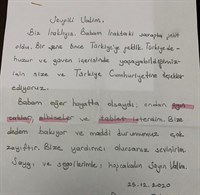 Sayın Valim.
Biz Iraklıyız. Babam Irak'taki savaşta şehit
oldu. Bir sene önce Türkiye'ye geldik. Türkiye'de
huzur ve güven içerisinde yaşayabildiğimiz
için size ve Türkiye Cumhuriyetine teşekkür
ediyoruz.
Babam eğer hayatta olsaydı; ondan
ve tablet isterdim. Bize
dedem bakıyor ve maddi durumumuz çok
zayıftır. Bize yardımcı olursanız sevinirim.
Saygı ve hocakalın Sayın Valim.
23.12.2020